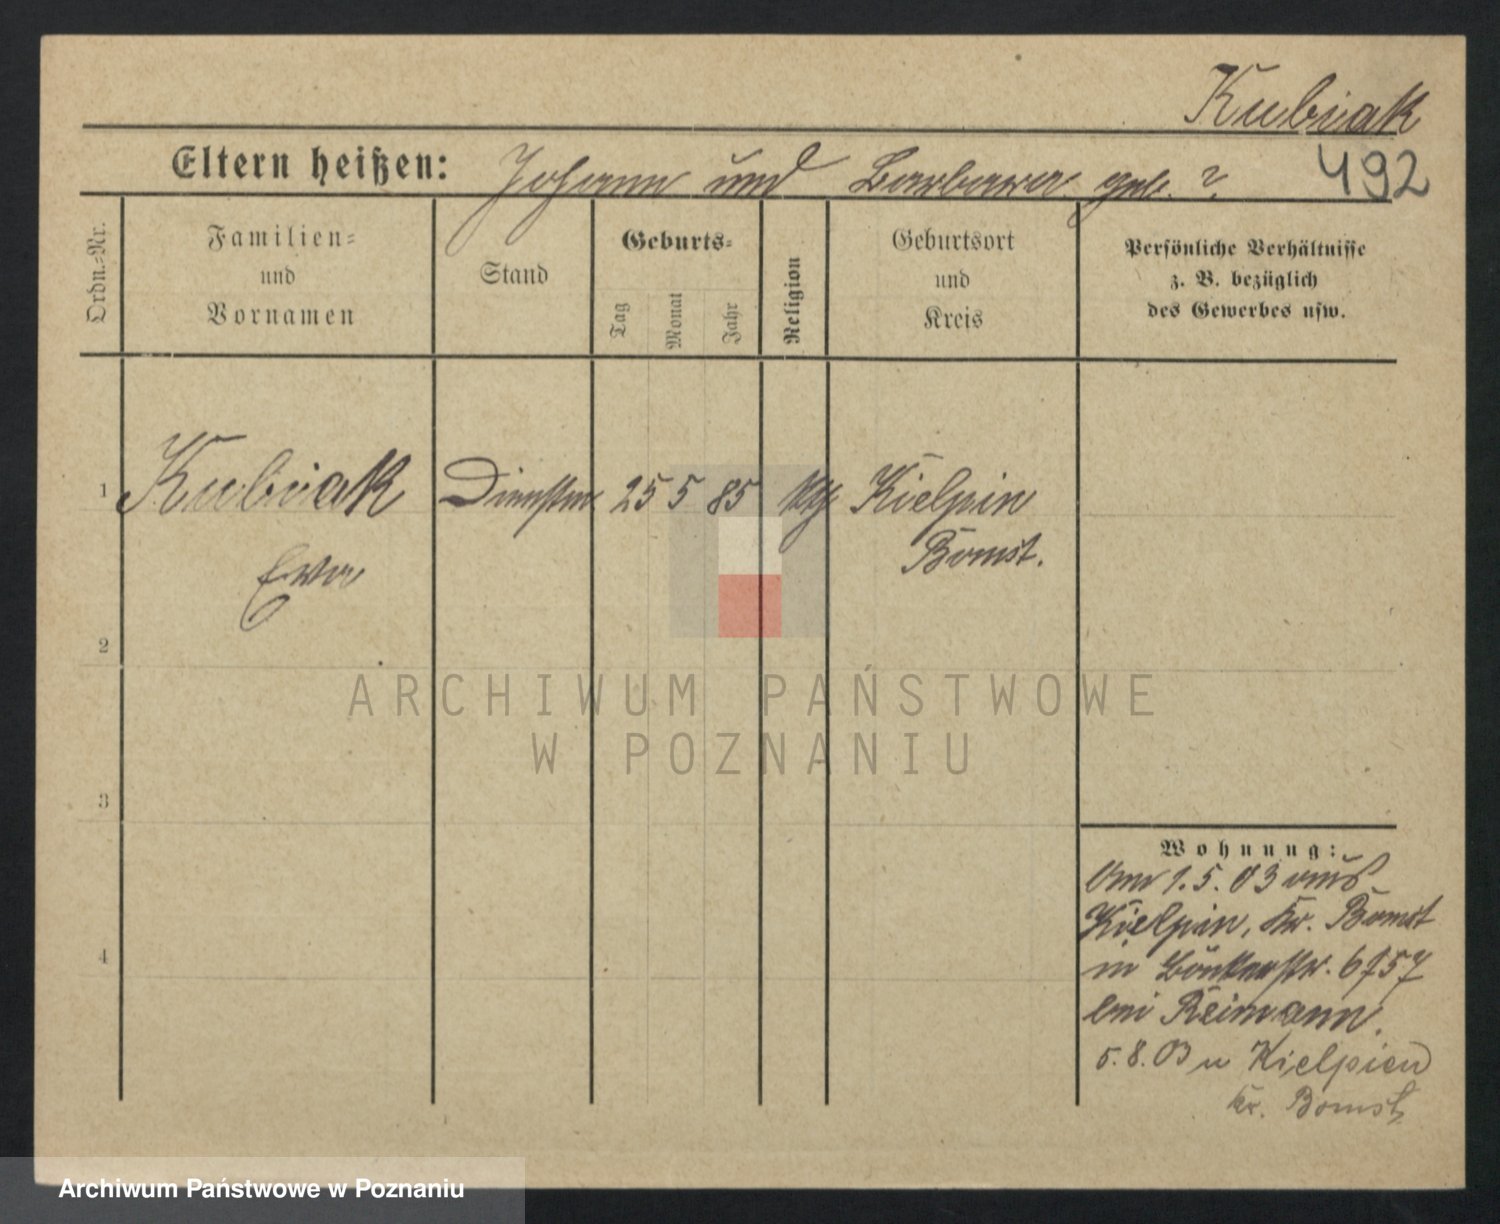 Kubiak
Eltern heißen: Johann und Barbara geb. ?
492
Ordn.-Nr.
Familien-
und
Vornamen
Stand
Geburts-
Tag
Monat
Jahr
Religion
Geburtsort
und
Kreis
Persönliche Verhältnisse
z. B. bezüglich
des Gewerbes usw.
1 Kubiak 25 5 85 Kielpin
Ewa
Bomst.
2
ARCHIWUM PAŃSTWOWE
W POZNANIU
3
4
Wohnung:
1.5.03 aus
Kielpin, Kr. Bomst
in
bei Reimann.
5.8.03 n Kielpien
Kr. Bomst
Archiwum Państwowe w Poznaniu